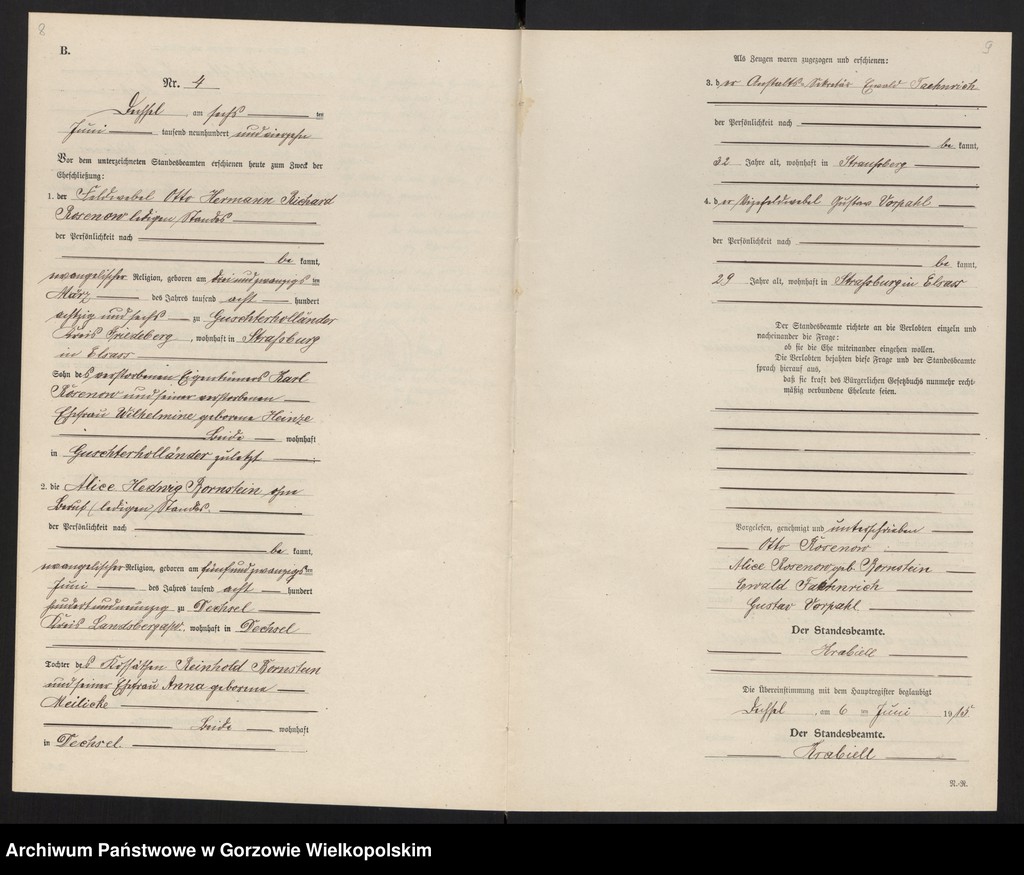 8
B.
Nr. 4
Dechsel, am sechs ten
Juni tausend neunhundert und vierzehn
Vor dem unterzeichneten Standesbeamten erschienen heute zum Zweck der
Eheschließung:
1. der Feldwebel Otto Hermann Richard
Rosenow ledigen Standes
der Persönlichkeit nach
be kannt,
evangelischer Religion, geboren am drei und zwanzigsten
März des Jahres tausend acht hundert
achtzig und sechs zu Guschterholländer
Kreis Friedeberg, wohnhaft in Straßburg
in Elsass
Sohn des verstorbenen Eigentümers Karl
Rosenow und seiner verstorbenen
Ehefrau Wilhelmine geborene Heinze
Beide wohnhaft
in Guschterholländer zuletzt
2. die Alice Hedwig Bornstein ohne
Beruf, ledigen Standes.
der Persönlichkeit nach
be kannt,
evangelischer Religion, geboren am fünf und zwanzigsten
Juni des Jahres tausend acht hundert
hundert und neunzig zu Dechsel
Kreis Landsberg a/W., wohnhaft in Dechsel
Tochter des Kossäthen Reinhold Bornstein
und seiner Ehefrau Anna geborene
Meilicke
Beide wohnhaft
in Dechsel.
9
Als Zeugen waren zugezogen und erschienen:
3. der Anstalts-Sekretär Ewald Tachnrich
der Persönlichkeit nach
be kannt,
32 Jahre alt, wohnhaft in Straußberg
4. der Vizefeldwebel Gustav Vorpahl
der Persönlichkeit nach
be kannt,
29 Jahre alt, wohnhaft in Strassburg in Elsass
Der Standesbeamte richtete an die Verlobten einzeln und
nacheinander die Frage:
ob sie die Ehe miteinander eingehen wollen.
Die Verlobten bejahten diese Frage und der Standesbeamte
sprach hierauf aus,
daß sie kraft des Bürgerlichen Gesetzbuchs nunmehr recht-
mäßig verbundene Eheleute seien.
Vorgelesen, genehmigt und unterschrieben
Otto Rosenow
Alice Rosenow geb. Bornstein
Ewald Tachnrich
Gustav Vorpahl
Der Standesbeamte.
Krabiell
Die Übereinstimmung mit dem Hauptregister beglaubigt
Dechsel, am 6 ten Juni 1915.
Der Standesbeamte.
Krabiell
N.-R.
Archiwum Państwowe w Gorzowie Wielkopolskim